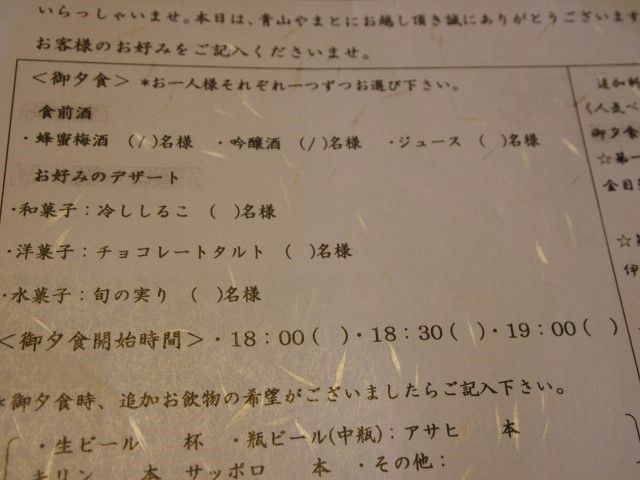 いらっしゃいませ。本日は、青山やまとにお越し頂き誠にありがとうございます
お客様のお好みをご記入くださいませ。
＜御夕食＞ *お一人様それぞれ一つずつお選び下さい。
食前酒
・蜂蜜梅酒 (/)名様 ・吟醸酒 (/)名様 ・ジュース ( )名様
お好みのデザート
・和菓子：冷ししるこ ( )名様
・洋菓子：チョコレートタルト ( )名様
・水菓子：旬の実り ( )名様
＜御夕食開始時間＞・18：00( )・18：30( )・19：00( )
*御夕食時、追加お飲物の希望がございましたらご記入下さい。
・生ビール 杯 ・瓶ビール(中瓶)：アサヒ 本
キリン 本 サッポロ 本 ・その他：
追加料
(人気ベ
御夕食
☆第一
金目
☆
伊